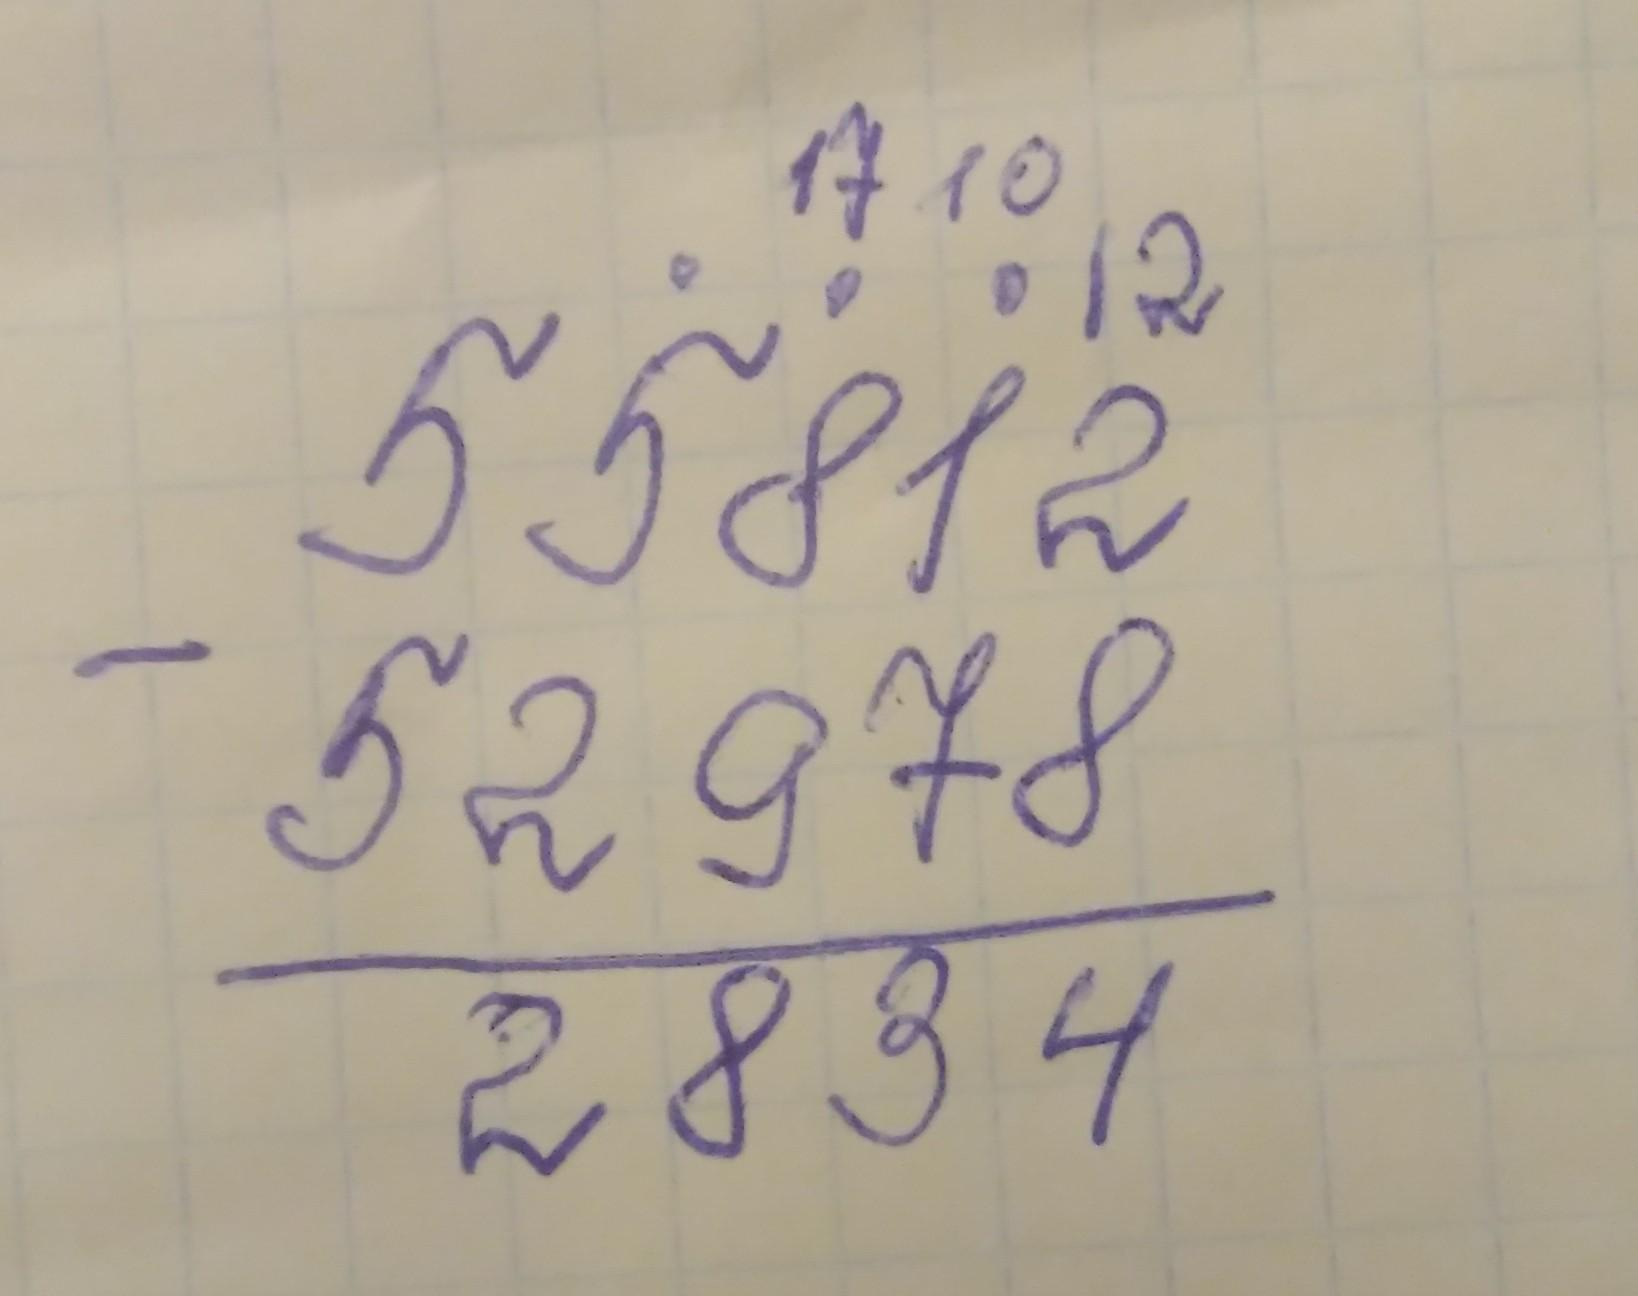 17 10
. . . 12
55812
-
52978
2834